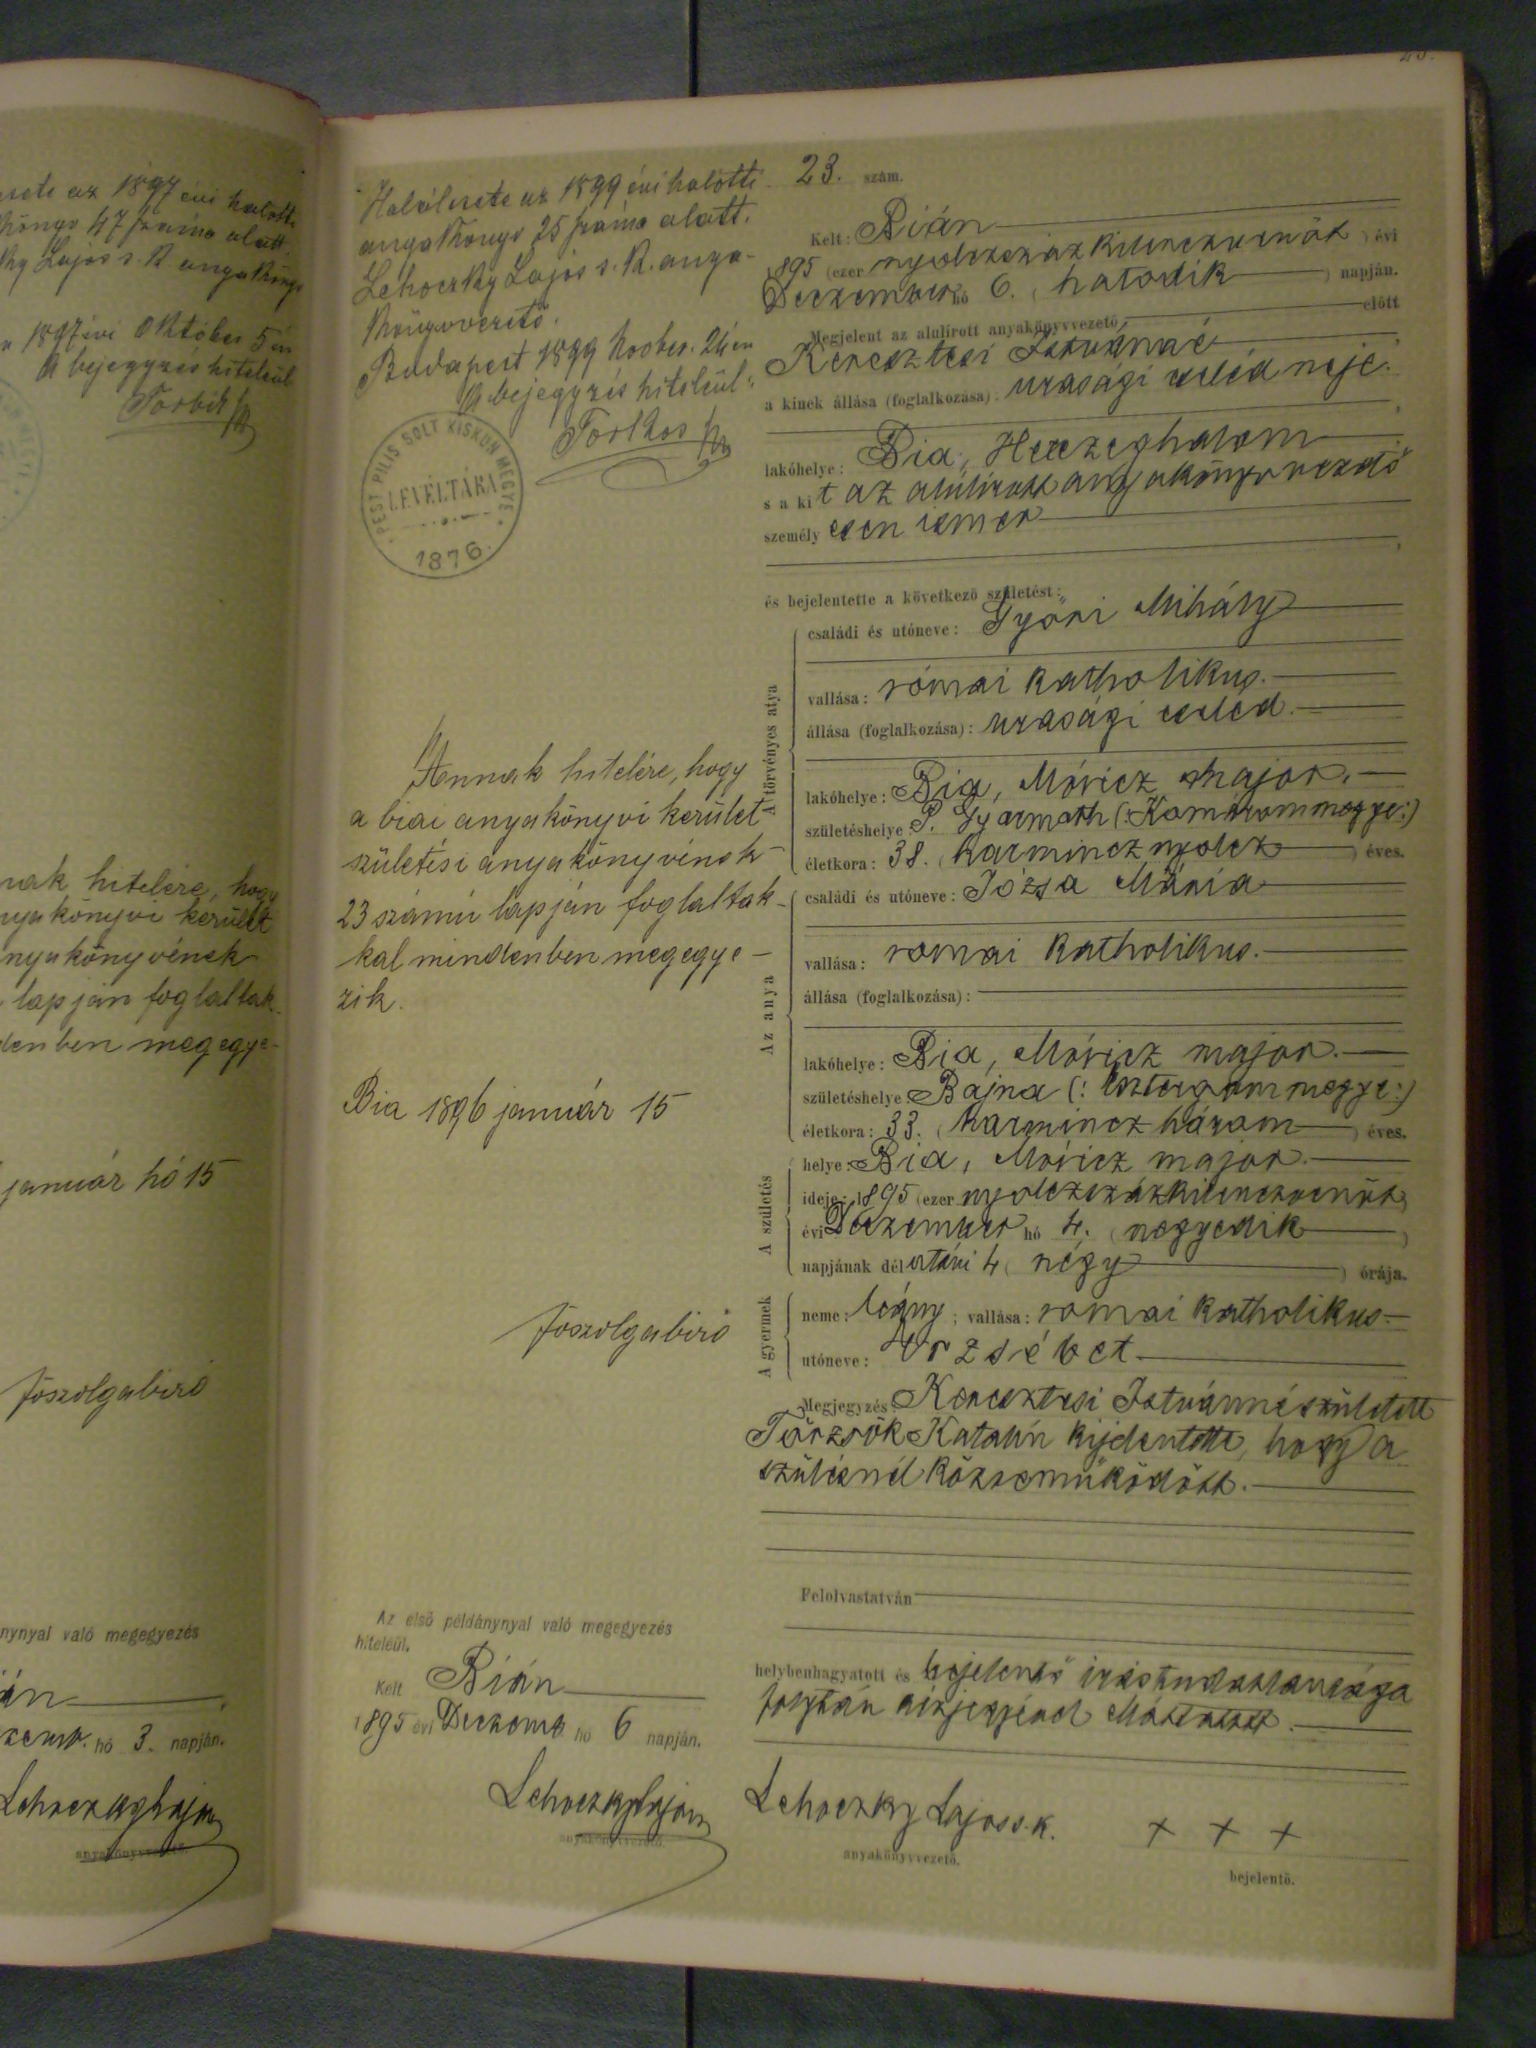 1897 évi halotti
könyv 47 száma alatt
Lajos s. k. anyakönyv
1897 évi Október 5 én
A bejegyzés hiteléül
nak hitelére, hogy
nyakönyvi kerület
nyakönyvének
lapján foglaltak
denben megegye-
január hó 15
főszolgabiró
nynyal való megegyezés
hó 3. napján.
Lehoczky Lajos
anyakönyvvezető.
Halálesete az 1899 évi halotti
anyakönyv 25 száma alatt.
Lehoczky Lajos s. k. anya-
könyvvezető.
Budapest 1899 Novber. 24 én
A bejegyzés hiteléül:
PEST PILIS SOLT KISKUN MEGYE
LEVÉLTÁRA
1876.
Annak hitelére, hogy
a biai anyakönyvi kerület
születési anyakönyvének
23 számú lapján foglaltak-
kal mindenben megegye-
zik.
Bia 1896 január 15
főszolgabiró
Az első példánynyal való megegyezés
hiteléül.
Kelt Bián
1895 évi Deczemb hó 6 napján.
Lehoczky Lajos
anyakönyvvezető.
23. szám.
Kelt: Bián
1895 (ezer nyolczszázkilenczvenöt) évi
Deczember hó 6. (hatodik) napján.
Megjelent az alulírott anyakönyvvezető előtt
Keresztesi Istvánné
a kinek állása (foglalkozása): urasági cseléd neje.
lakóhelye: Bia, Herczeghalom
s a kit az alulírott anyakönyvvezető
személyesen ismer
és bejelentette a következő születést:
A törvényes atya
családi és utóneve: Győri Mihály
vallása: római katholikus.
állása (foglalkozása): urasági cseléd.
lakóhelye: Bia, Móricz major.
születéshelye: P. Gyarmath (:Komárommegye:)
életkora: 38. (harmincznyolcz) éves.
Az anya
családi és utóneve: Józsa Mária
vallása: romai katholikus.
állása (foglalkozása):
lakóhelye: Bia, Móricz major.
születéshelye: Bajna (: Esztergommegye:)
életkora: 33. (harminczhárom) éves.
A születés
helye: Bia, Móricz major.
ideje: 1895 (ezer nyolczszázkilenczvenöt)
évi Deczember hó 4. (negyedik)
napjának délutáni 4 (négy) órája.
A gyermek
neme: leány; vallása: romai katholikus
utóneve: Erzsébet
Megjegyzés: Keresztesi Istvánné született
Törzsök Katalin kijelentette, hogy a
szülésnél közreműködött.
Felolvastatván
helybenhagyatott és bejelentő irástudatlansága
folytán kézjegyével ellátatott.
Lehoczky Lajos s. k.
anyakönyvvezető.
+ + +
bejelentő.